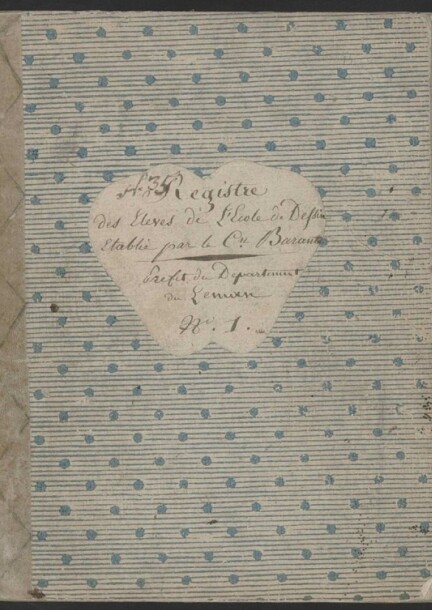 Registre
des Eleves de L'Ecole de Dessin
Etablie par le Cn. Barante
Préfet du Departement
du Leman
N°. 1.